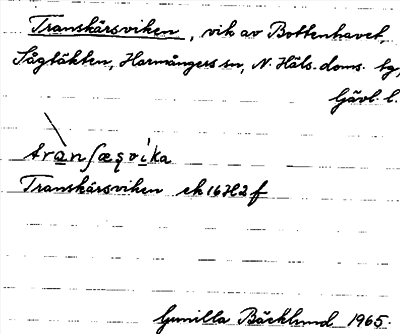 Transkärsviken, vik av Bottenhavet,
Sågtäkten, Harmångers sn, N. Häls. doms. tg,
Gävl. l.
tranʃæʂvika
Transkärsviken ek 16H2f
Gunilla Bäcklund 1965.